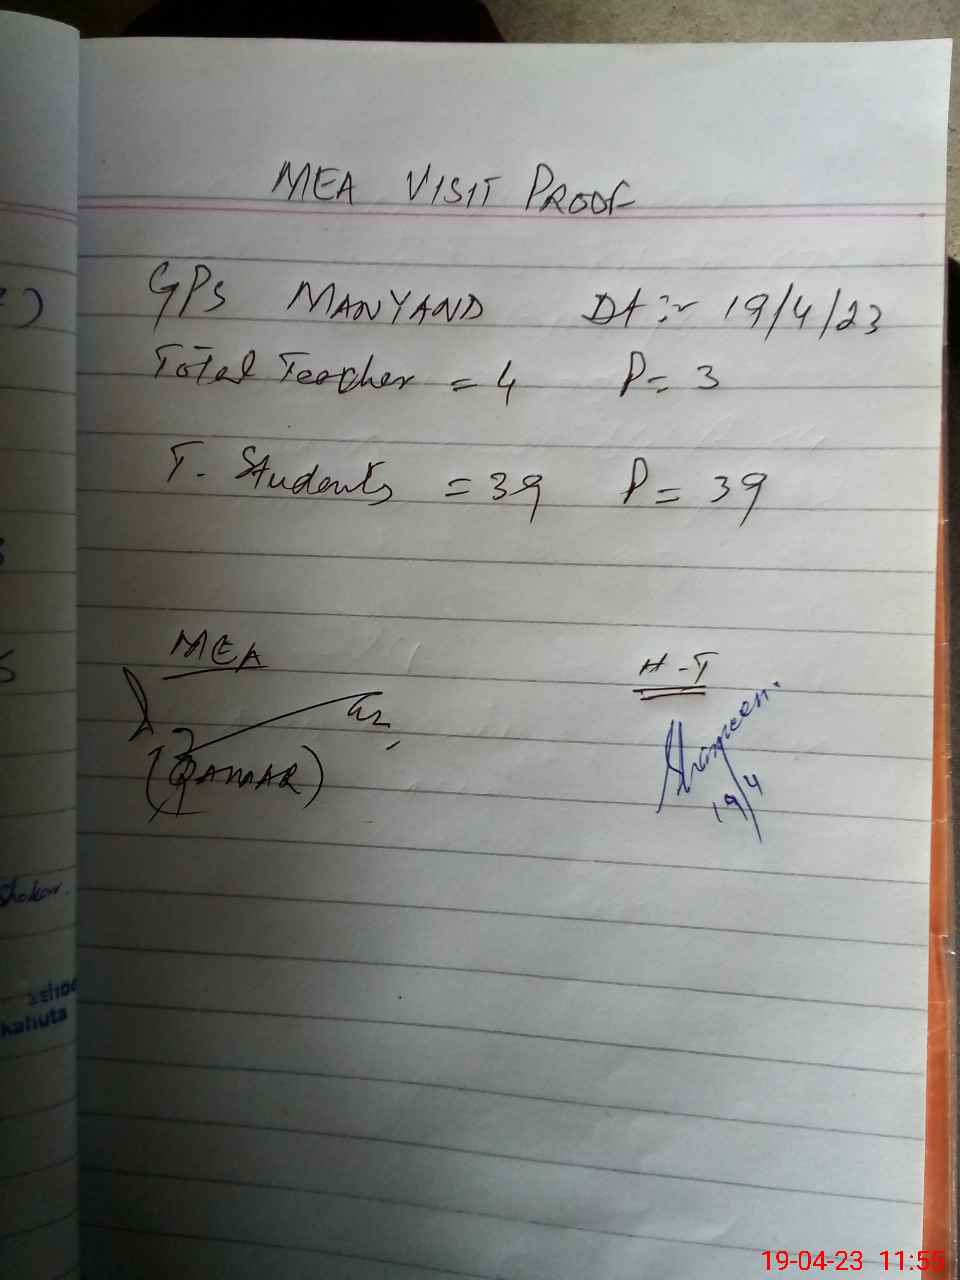 MEA VISIT PROOF
GPS MANYAND Dt:- 19/4/23
Total Teacher = 4 P= 3
T. Students = 39 P= 39
MEA
H-T
(QAMAR)
19/4
Shakar.
School
Kahuta
19-04-23 11:55